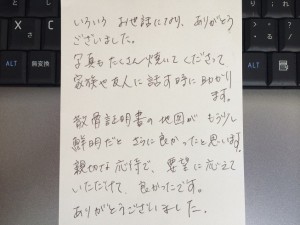 いろいろお世話になり、ありがとう
ございました。
写真もたくさん焼いてくださって
家族や友人に話す時に助かり
ます。
散骨証明書の地図がもう少し
鮮明だとさらに良かったと思います。
親切な応待で、要望に応えて
いただけて、良かったです。
ありがとうございました.
ALT
無変換
ALT